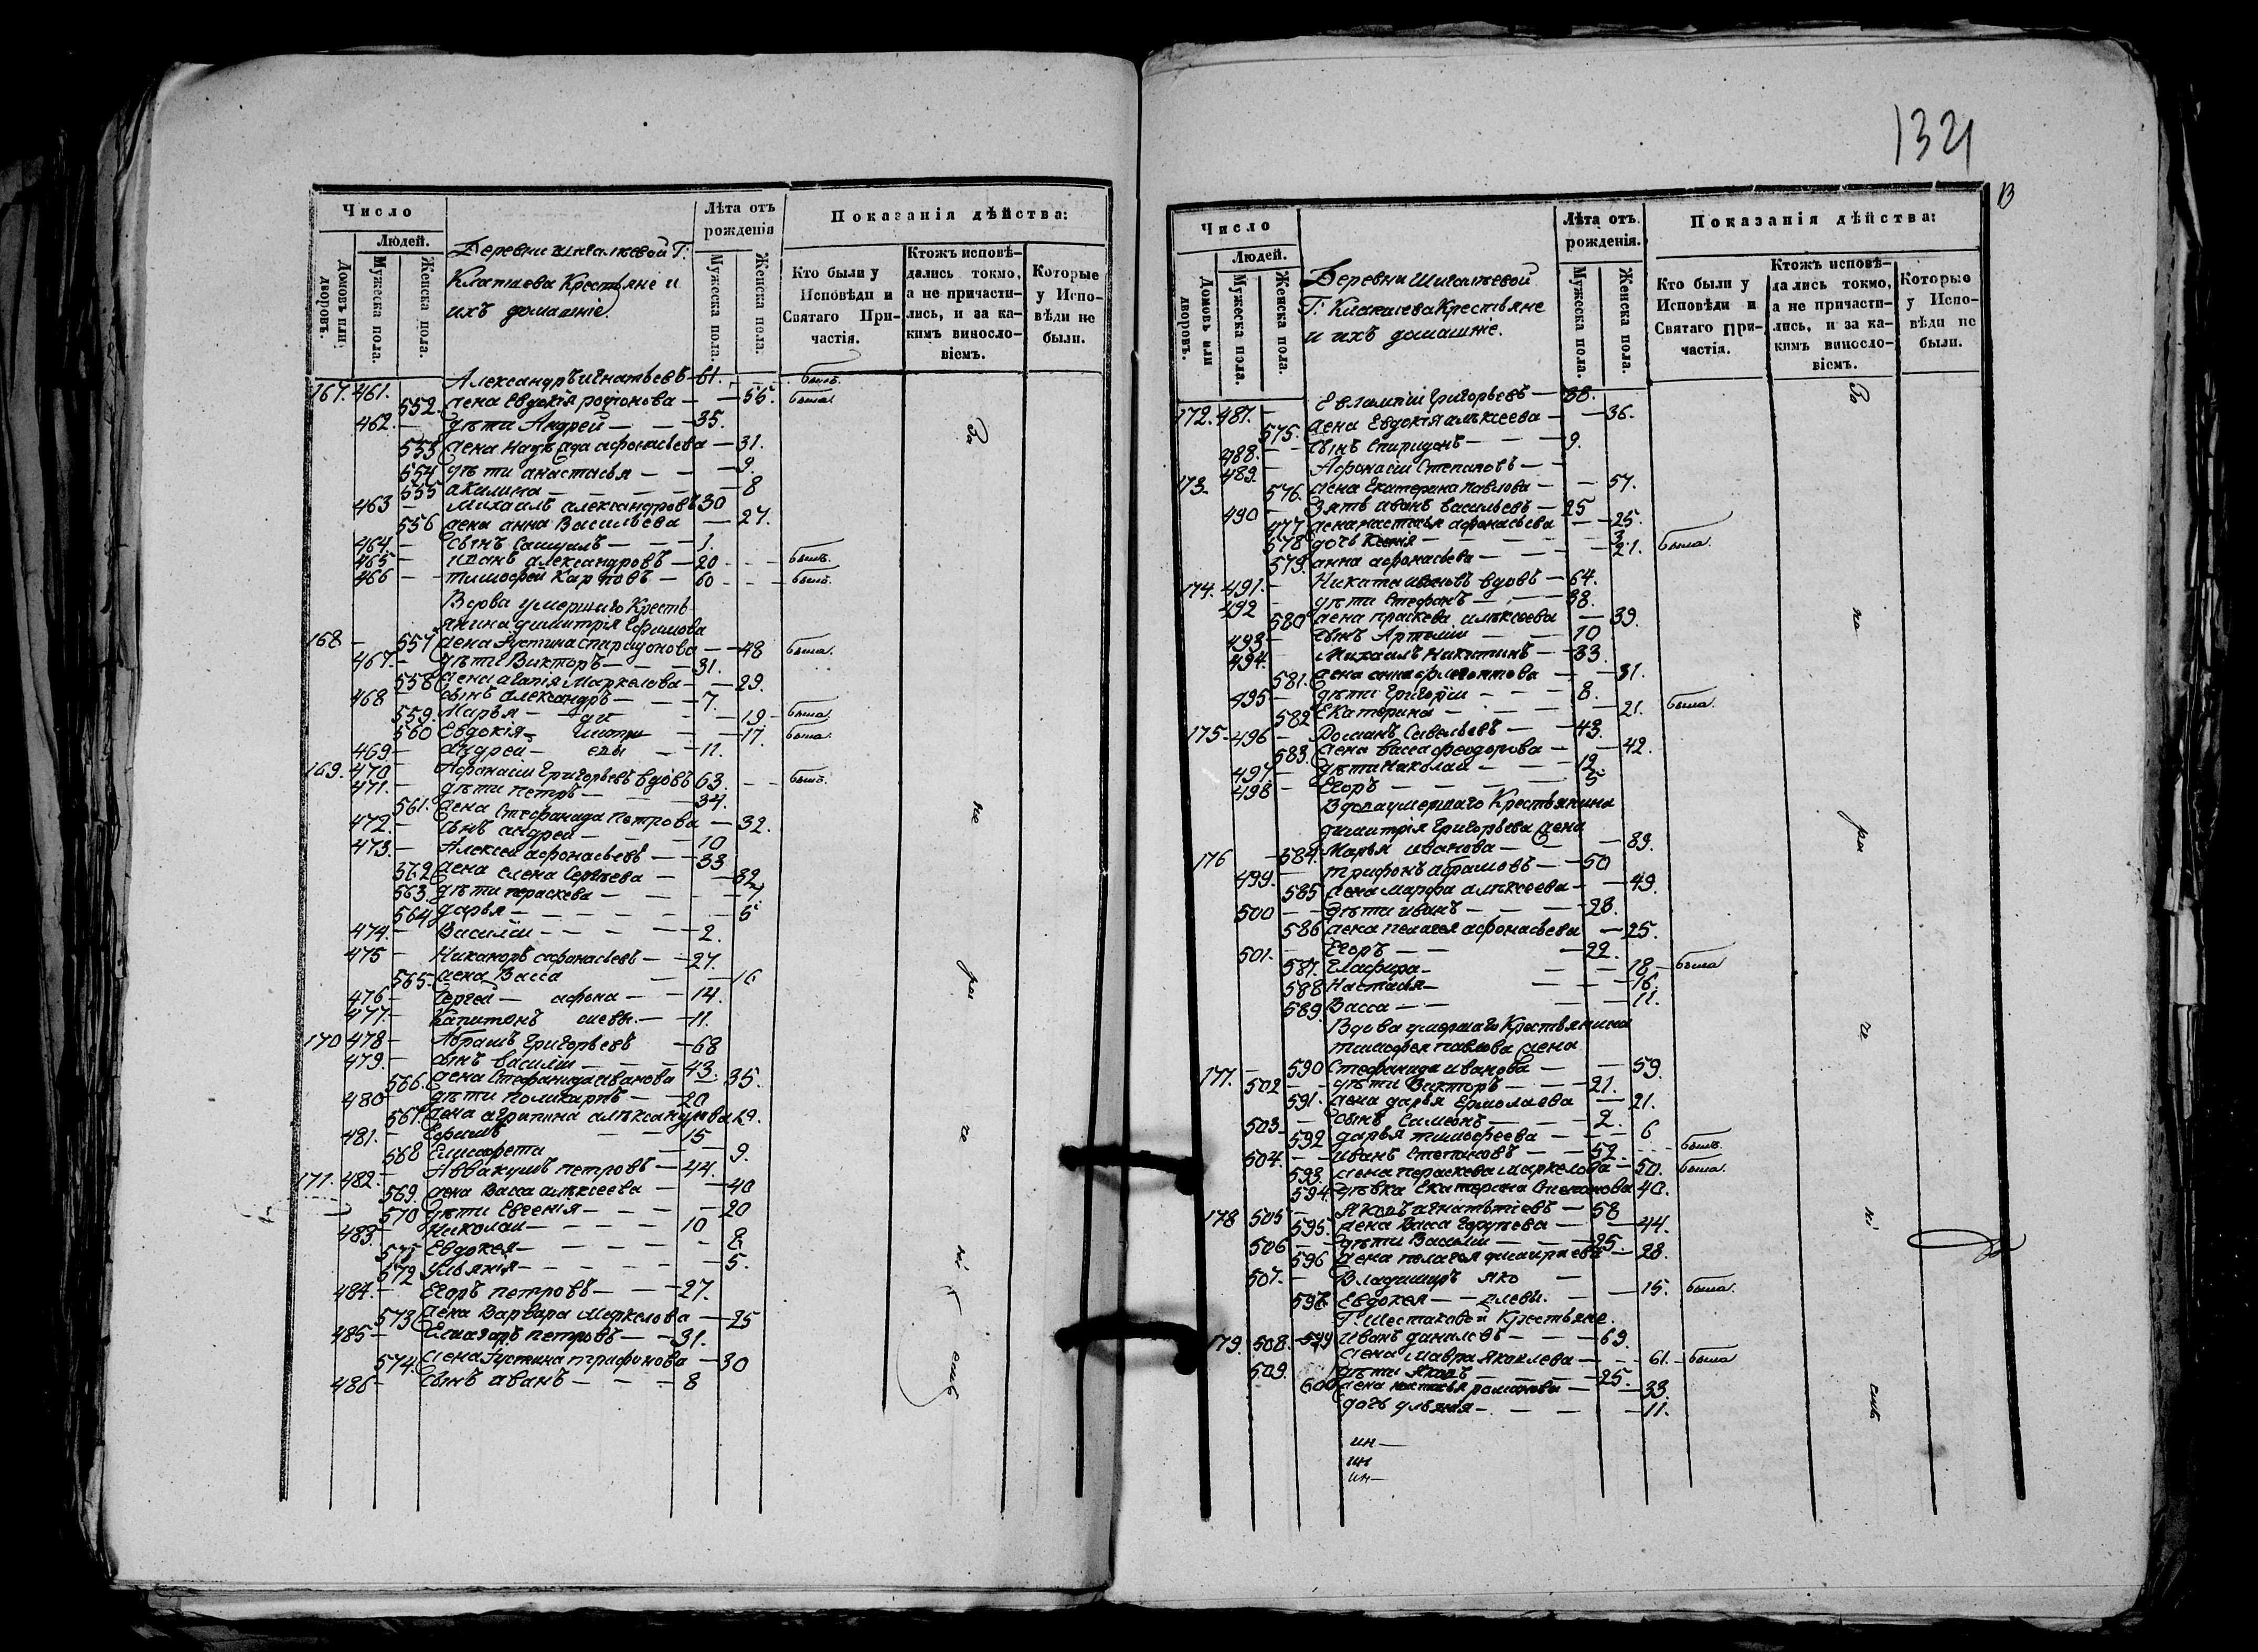 Число
Людей.
Домовъ или дворовъ.
Мужеска пола.
Женска пола.
Деревни Шигалевой Г:
Клапшева Крестьяне и
ихъ домашніе
Лѣта отъ рожденія
Мужеска пола.
Женска пола.
Показанія дѣйства:
Кто были у Исповѣди и Святаго Причастія.
Ктожъ исповѣдались токмо, а не причастились, и за какимъ винословіемъ.
Которые у Исповѣди не были.
167. 461. Александръ игнатьевъ 61. былъ.
552. жена Евдокія родіонова 55. была
462. дѣти Андрей 35.
553 жена надѣжда афонасьева 31.
554 дѣти анастасья 9.
555 акилина 8
463 Михаилъ александровъ 30
556 жена анна Васильева 27.
464. сынъ Самуилъ 1.
465 иванъ александровъ 20 былъ.
466 тимофей Карповъ 60 былъ.
Вдова умершаго Кресть
янина димитрія Ефимова
168 557 жена Іустина спиридонова 48 была.
467. дѣти Викторъ 31.
558 жена агапія Маркелова 29.
468 сынъ александръ 7.
559. Марья 19 была
560 Евдокія 17. была
469 андрей 11.
169. 470 Афонасіи Григорьевъ вдовъ 63. былъ.
471. дѣти петръ 34.
561. жена Стефанида петрова 32.
472. сынъ андреи 10
473. Алексеи афонасьевъ 33
562 жена елена Сергѣева 32
563. дѣти пераскева 7.
564 дарья 5
474. Василіи 2.
475 Никаноръ афонасьевъ 27.
565. жена Васса 16
476 Сергей афона 14.
477. Капитонъ сьевы. 11.
170 478 Абрамъ Григорьевъ 68
479. сынъ василіи 43.
566. жена Стефанида иванова 35.
480 дѣти поликарпъ 20
567. жена агрипина алѣксандрова 19.
481. Ефимъ 15
568 Елисафета 9.
171. 482. Аввакумъ петровъ 44.
569. жена Васса алѣксеева 40
570 дѣти Евгенія 20
483. Николаи 10
571 Евдокея 8
572 ульянія 5.
484. Егоръ петровъ 27.
573 жена Варвара Меркелова 25
485 Елиазаръ петровъ 31.
574. жена Іустина трифонова 30
486 сынъ иванъ 8
За не ра че ні емъ
1321
13
Число
Людей.
Домовъ или дворовъ.
Мужеска пола.
Женска пола.
Деревни Шигалевой
Г: Клапшева Крестьяне
и ихъ домашніе.
Лѣта отъ рожденія.
Мужеска пола.
Женска пола.
Показанія дѣйства:
Кто были у Исповѣди и Святаго Причастія.
Ктожъ исповѣдались токмо, а не причастились, и за какимъ винословіемъ.
Которые у Исповѣди не были.
172. 487. Евлампіи Григорьевъ 38.
575. жена Евдокія алѣксеева 36.
488. сынъ Спиридонъ 9.
173. 489. Афонасіи Степановъ
576. жена Екатерина павлова 57.
490 Зять иванъ васильевъ 25
577 жена настасья афонасьева 25.
578 дочь Ксенія 3.
579. анна афонасьева 21. была.
174. 491. Никита ивановъ вдовъ 64.
492 дѣти Стефанъ 38.
580 жена праскева алѣксеева 39.
493 сынъ Артеміи 10
494. Михаилъ никитинъ 33
581. жена анна флегонтова 31.
495 дѣти Григоріи 8.
582 Екатерина 21. была.
175 496 Романъ Савельевъ 43.
583. жена васса феодорова 42.
497 дѣти николаи 12
498 Егоръ 5
Вдова умершаго Крестьянина
димитрія Григорьева жена
176 584. Марья иванова 83.
499. трифонъ абрамовъ 50
585 жена марфа алѣксеева 49.
500 дѣти иванъ 28.
586 жена пелагея афонасьева 25.
501. Егоръ 22.
587. Глафира 18 была
588 Настасья 16.
589. Васса 11.
Вдова умершаго Крестьянина
тимофея павлова жена
177. 590 Стефанида иванова 59.
502 дѣти Викторъ 21.
591. жена дарья Ермолаева 21.
503 сынъ Самсонъ 2.
592 дарья тимофеева 6
504. иванъ Степановъ 52. былъ.
593. жена пераскева маркелова 50. была.
594. дѣвка Екатерина Степанова 40.
178 505 Яковъ игнатьтіевъ 58
595. жена Васса 44.
506 дѣти Василіи 25.
596 жена пелагея димитріева 28.
507. Владимиръ яко
598. Евдокея влевы. 15. была.
Г: Шестаковой Крестьяне.
179. 508. 599 Иванъ даниловъ 69
жена Мавра Яковлева 61. была
509. дѣти яковъ 25.
600 жена настасья романова 33.
дочь ульянія 11.
ин
ин
ин
За не ра че ні емъ